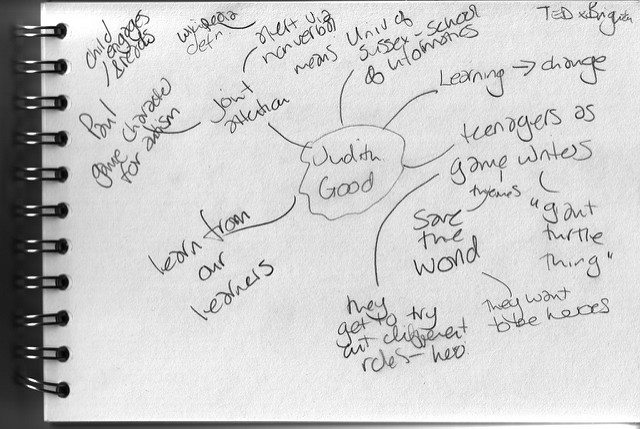 TEDxBrighton
Judith
Good
Univ of
Sussex - school
of informatics
Learning → change
teenagers as
game writers
themes
save
the
world
They want
to be heroes
"giant
turtle
thing"
they
get to try
out different
roles - hero
learn from
our
learners
joint
attention
alert via
nonverbal
means
wikipedia
defn
Paul
game character
for autism
child
engages
& reacts